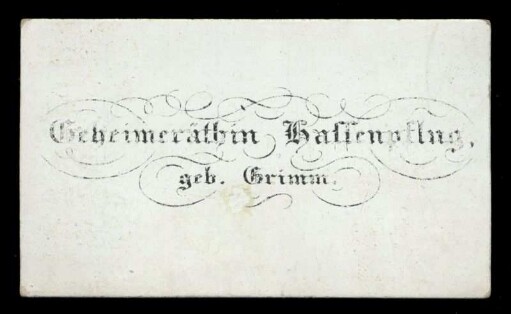 Geheimeräthin Hassenpflug,
geb. Grimm.